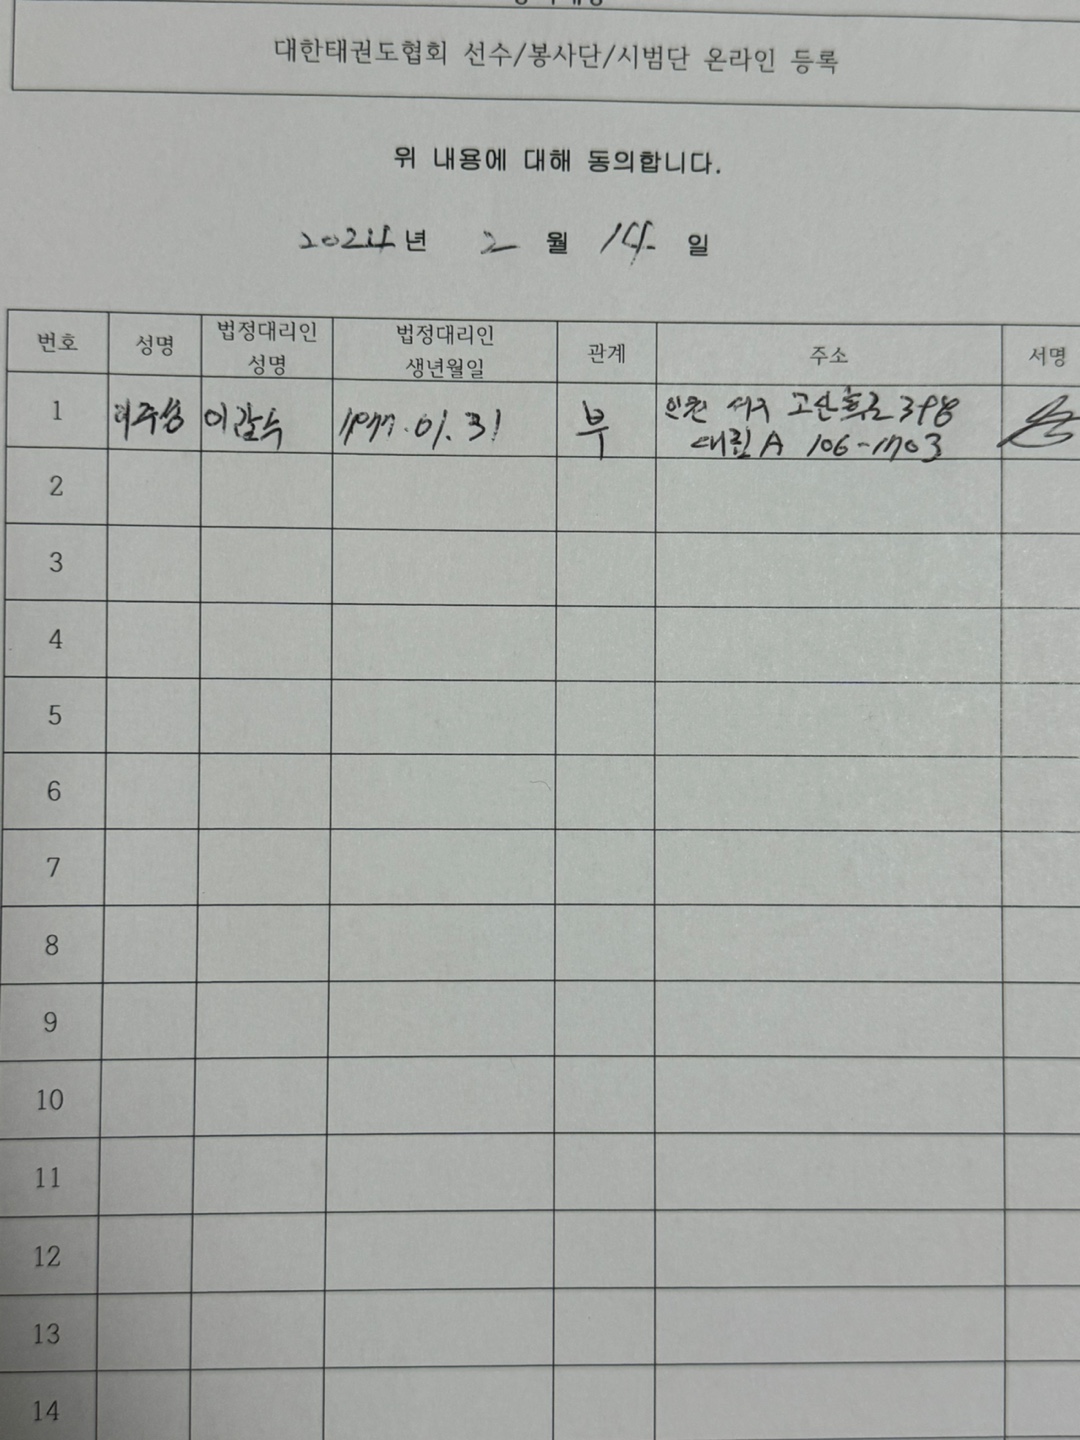 대한태권도협회 선수/봉사단/시범단 온라인 등록
위 내용에 대해 동의합니다.
2024년 2월 14일
번호 성명 법정대리인 성명 법정대리인 생년월일 관계 주소 서명
1 이주성 이갑수 1977.01.31 부 인천 서구 고산후로 398
대림A 106-1703
2
3
4
5
6
7
8
9
10
11
12
13
14